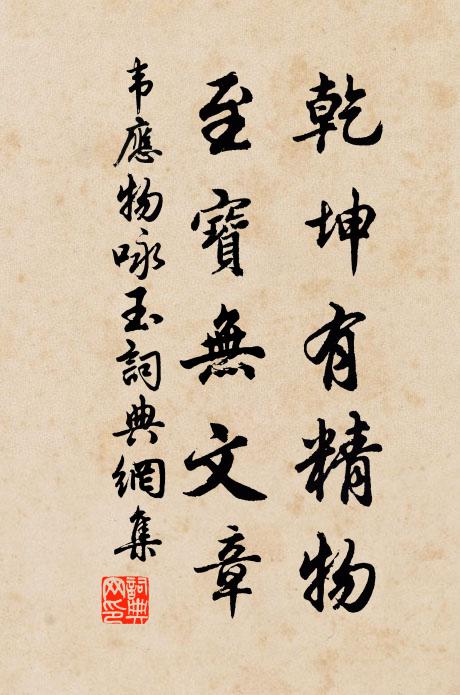 乾坤有精物
至寶無文章
韦應物咏玉詞典網集
詞典